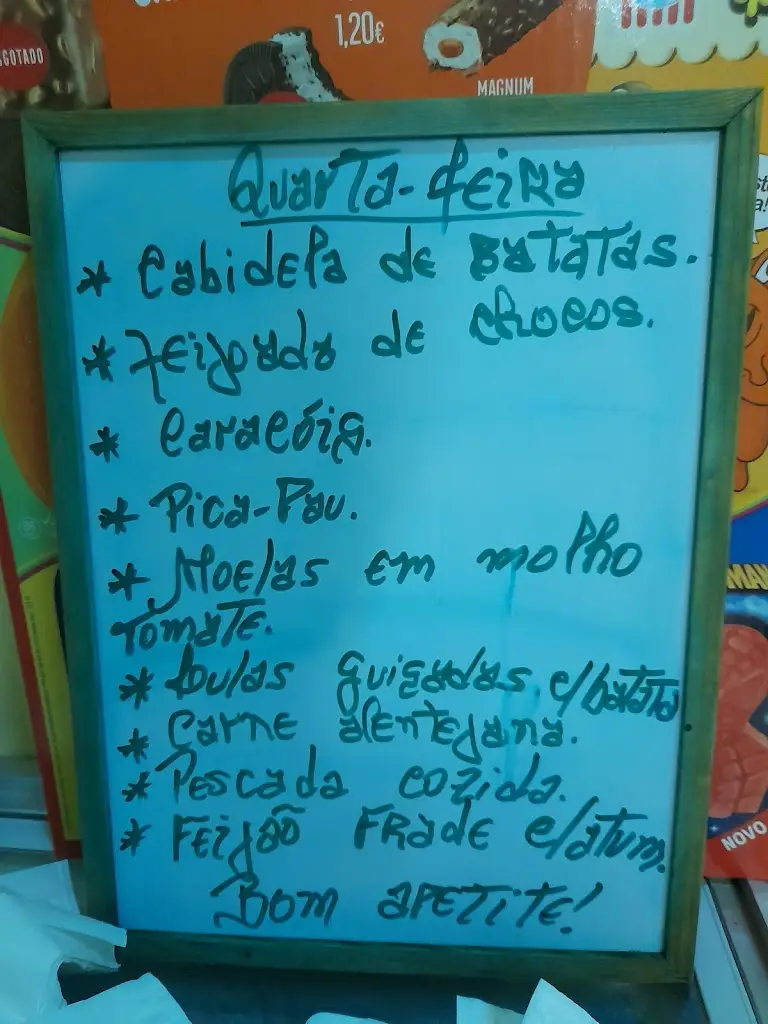 SGOTADO
1,20€
MAGNUM
Quarta-feira
* Cabidela de Batatas.
* Feijoada de chocos.
* Caracóis.
* Pica-Pau.
* Moelas em molho
Tomate.
* Lulas guisadas c/batata
* Carne alentejana.
* Pescada cozida.
* Feijão Frade c/atum.
Bom apetite!
NOVO